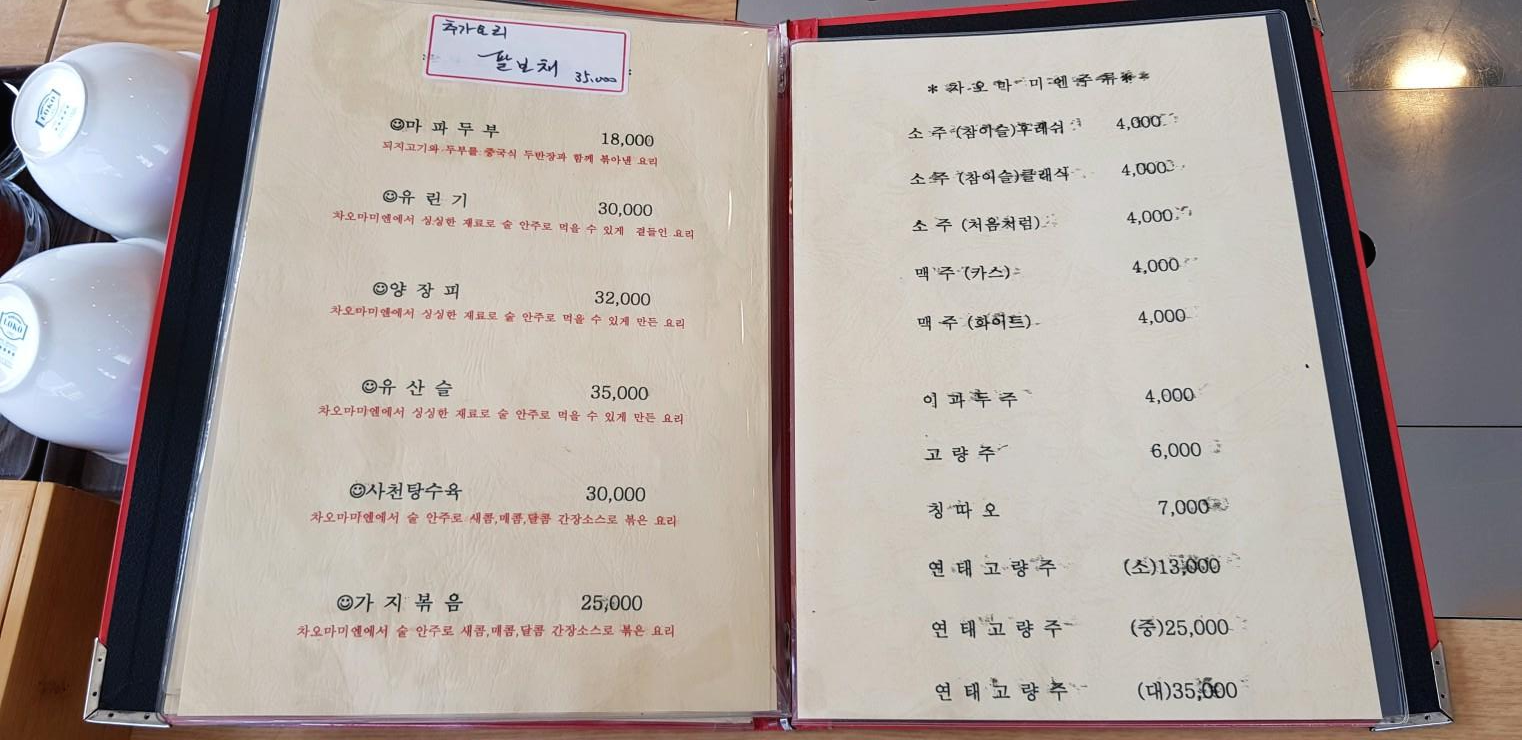 추가요리
팔보채 35,000
☺마 파 두 부 18,000
되지고기와 두부를 중국식 두반장과 함께 볶아낸 요리
☺유 린 기 30,000
차오마미엔에서 싱싱한 재료로 술 안주로 먹을 수 있게 곁들인 요리
☺양 장 피 32,000
차오마미엔에서 싱싱한 재료로 술 안주로 먹을 수 있게 만든 요리
☺유 산 슬 35,000
차오마미엔에서 싱싱한 재료로 술 안주로 먹을 수 있게 만든 요리
☺사천탕수육 30,000
차오마미엔에서 술 안주로 새콤,매콤,달콤 간장소스로 볶은 요리
☺가 지 볶 음 25,000
차오마미엔에서 술 안주로 새콤,매콤,달콤 간장소스로 볶은 요리
*차 오 마 미 엔 주 류*
소 주 (참이슬)후래쉬 4,000
소 주 (참이슬)클래식 4,000
소 주 (처음처럼) 4,000
맥 주 (카스) 4,000
맥 주 (화이트) 4,000
이 과 두 주 4,000
고 량 주 6,000
칭 따 오 7,000
연 태 고 량 주 (소)13,000
연 태 고 량 주 (중)25,000
연 태 고 량 주 (대)35,000
LOKO
LOKO